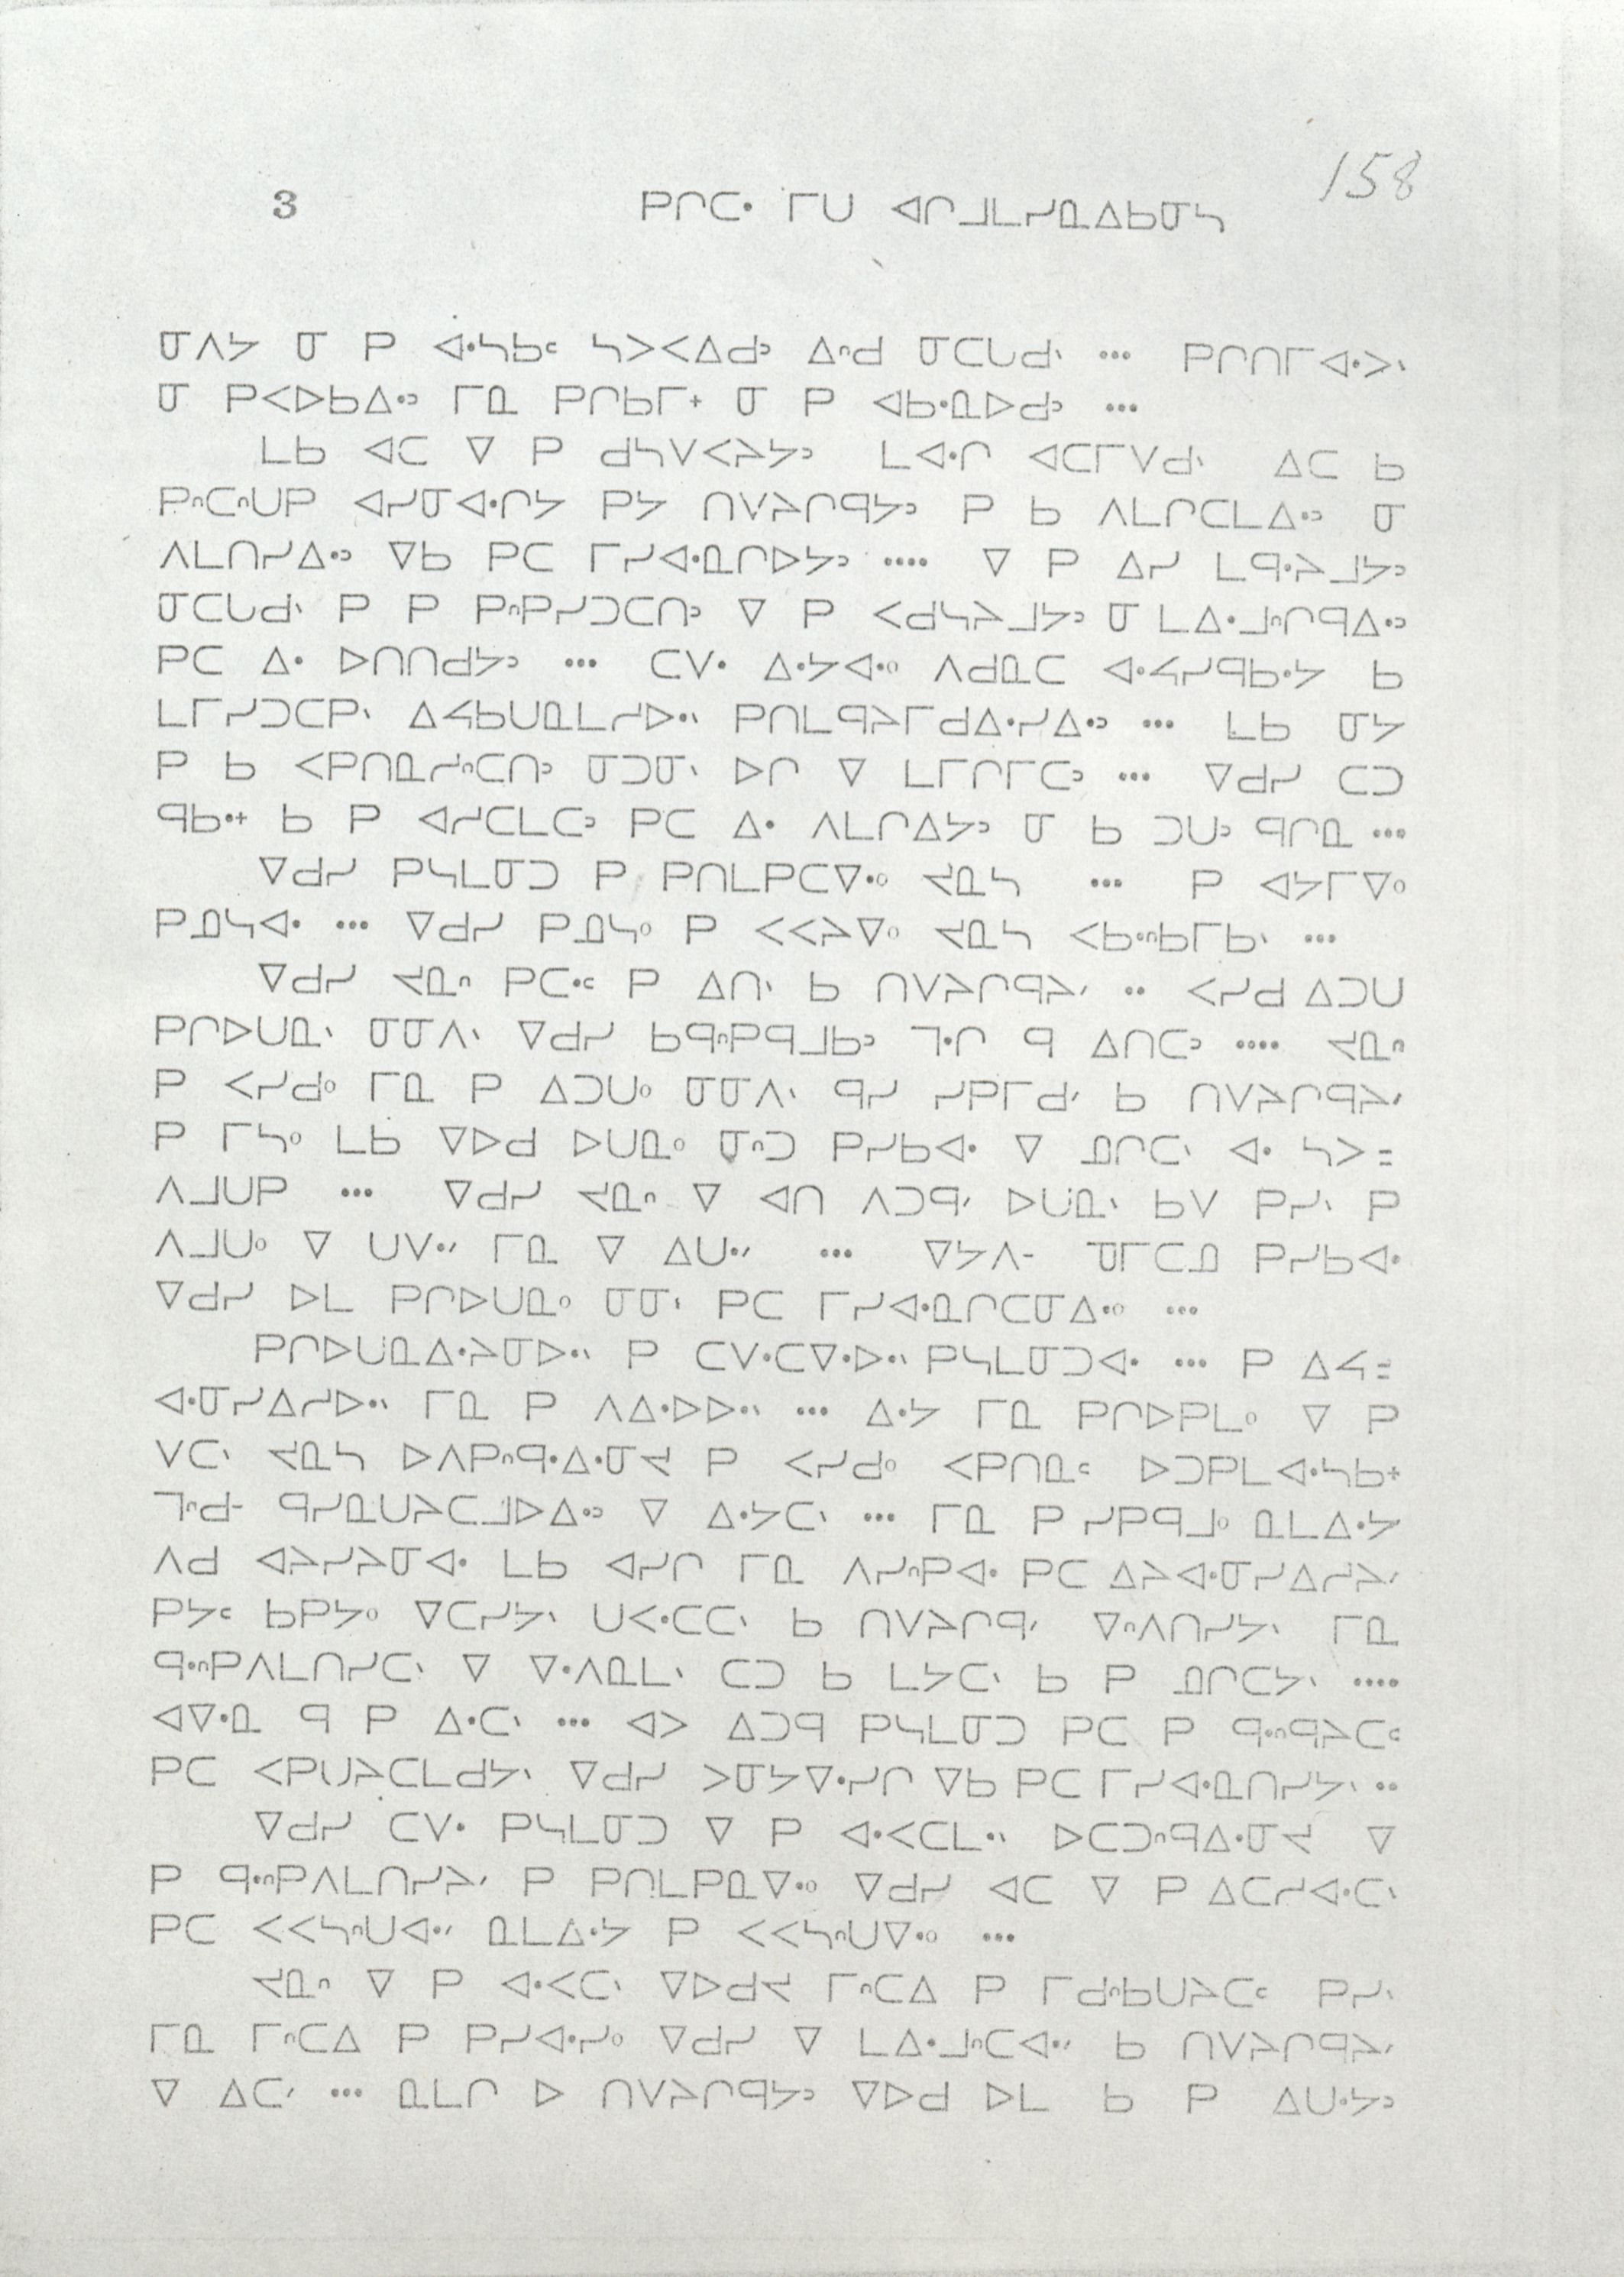 3 ᑭᒋᑕᐧ ᒥᑌ ᐊᒋᒧᒪᓯᓇᐃᑲᓂᓴ
158
ᓂᐱᔭ ᓂ ᑭ ᐊᐧᓴᑲᒼ ᓴᐳᐸᐃᑯᐣ ᐃᐢᑯ ᓂᑕᑌᑯᐠ ... ᑭᒋᑎᒥᐊᐧᐳᐠ
ᓂ ᑭᐸᐅᑲᐃᐧᐣ ᒥᓇ ᑭᒋᑲᒥᐩ ᓂ ᑭ ᐊᑲᐧᓇᐅᑯᐣ ...
ᒪᑲ ᐊᑕ ᐁ ᑭ ᑯᓴᐯᐸᔨᔭᐣ ᒪᐊᐧᒋ ᐊᑕᒥᐯᑯᐠ ᐃᑕ ᑲ
ᑭᐢᑕᐢᑌᑭ ᐊᓯᓂᐊᐧᒋᔭ ᑭᔭ ᑎᐯᔨᒋᑫᔭᐣ ᑭ ᑲ ᐱᒪᒋᑕᒪᐃᐧᐣ ᓂ
ᐱᒪᑎᓯᐃᐧᐣ ᐁᑲ ᑭᑕ ᒥᓯᐊᐧᓇᒋᐅᔭᐣ .... ᐁ ᑭ ᐃᓯ ᒪᑫᐧᔨᒧᔭᐣ
ᓂᑕᑌᑯᐠ ᑭ ᑭ ᑭᐢᑭᓯᑐᑕᑎᐣ ᐁ ᑭ ᐸᑯᓭᔨᒧᔭᐣ ᓂ ᒪᐃᐧᒧᐢᒋᑫᐃᐧᐣ
ᑭᑕ ᐃᐧ ᐅᑎᑎᑯᔭᐣ ... ᑕᐯᐧ ᐃᐧᔭᐊᐧᐤ ᐱᑯᓇᑕ ᐊᐧᔦᓯᑫᑲᐧᔭ ᑲ
ᒪᒥᓯᑐᑕᑭᐠ ᐃᔦᑲᑌᓇᒪᓱᐅᐧᐠ ᑭᑎᒪᑫᔨᒥᑯᐃᐧᓯᐃᐧᐣ ... ᒪᑲ ᓂᔭ
ᑭ ᑲ ᐸᑭᑎᓇᓱᐢᑕᑎᐣ ᓂᑐᓂᐠ ᐅᒋ ᐁ ᒪᒥᒋᒥᑕᐣ ... ᐁᑯᓯ ᑕᑐ
ᑫᑲᐧᐩ ᑲ ᑭ ᐊᓱᑕᒪᑕᐣ ᑭᑕ ᐃᐧ ᐱᒪᒋᐃᔭᐣ ᓂ ᑲ ᑐᑌᐣ ᑫᒋᓇ ...
ᐁᑯᓯ ᑭᓭᒪᓂᑐ ᑭ ᑭᑎᒪᑭᑕᐁᐧᐤ ᔪᓇᓴ ... ᑭ ᐊᔭᒥᐁᐤ
ᑭᓄᓴᐊᐧ ... ᐁᑯᓯ ᑭᓄᓴᐤ ᑭ ᐸᐸᔨᐁᐤ ᔪᓇᓴ ᐸᑲᐧᐢᑲᒥᑲᐠ ...
ᐁᑯᓯ ᔪᓇᐢ ᑭᑕᐧᒼ ᑭ ᐃᑎᐠ ᑲ ᑎᐯᔨᒋᑫᔨᐟ .. ᐸᓯᑯ ᐃᑐᑌ
ᑭᒋᐅᑌᓇᐠ ᓂᓂᐱᐠ ᐁᑯᓯ ᑲᑫᐢᑭᑫᒧᑲᐣ ᒣᐧᒋ ᑫ ᐃᑎᑕᐣ .... ᔪᓇᐢ
ᑭ ᐸᓯᑯᐤ ᒥᓇ ᑭ ᐃᑐᑌᐤ ᓂᓂᐱᐠ ᑫᓯ ᓯᑭᒥᑯᐟ ᑲ ᑎᐯᔨᒋᑫᔨᐟ
ᑭ ᒥᓴᐤ ᒪᑲ ᐁᐅᑯ ᐅᑌᓇᐤ ᓂᐢᑐ ᑭᓯᑲᐊᐧ ᐁ ᓄᒋᑕᐠ ᐊᐧ ᓴᐳ=
ᐱᒧᑌᑭ ... ᐁᑯᓯ ᔪᓇᐢ ᐁ ᐊᑎ ᐱᑐᑫᐟ ᐅᑌᓇᐠ ᑲᐯ ᑭᓯᐠ ᑭ
ᐱᒧᑌᐤ ᐁ ᑌᐯᐧᐟ ᒥᓇ ᐁ ᐃᑌᐧᐟ ... ᐁᔭᐱᐨ ᓀᒥᑕᓄ ᑭᓯᑲᐊᐧ
ᐁᑯᓯ ᐅᒪ ᑭᒋᐅᑌᓇᐤ ᓂᓂᐠ ᑭᑕ ᒥᓯᐊᐧᓇᒋᑕᓂᐃᐧᐤ ...
ᑭᒋᐅᑌᓇᐃᐧᔨᓂᐅᐧᐠ ᑭ ᑕᐯᐧᑕᐁᐧᐅᐧᐠ ᑭᓭᒪᓂᑐᐊᐧ ... ᑭ ᐃᔦ=
ᐊᐧᓂᓯᐃᓱᐅᐧᐠ ᒥᓇ ᑭ ᐱᐃᐧᐅᐅᐧᐠ ... ᐃᐧᔭ ᒥᓇ ᑭᒋᐅᑭᒪᐤ ᐁ ᑭ
ᐯᑕᐠ ᔪᓇᓴ ᐅᐱᑭᐢᑫᐧᐃᐧᓂᔪ ᑭ ᐸᓯᑯᐤ ᐸᑭᑎᓇᒼ ᐅᑐᑭᒪᐊᐧᓴᑲᐩ
ᒣᐢᑯᐨ ᑫᓯᓇᑌᔨᑕᒧᐅᐃᐧᐣ ᐁ ᐃᐧᔭᑕᐠ ... ᒥᓇ ᑭ ᓯᑭᑫᒧᐤ ᓇᒪᐃᐧᔭ
ᐱᑯ ᐊᔨᓯᔨᓂᐊᐧ ᒪᑲ ᐊᓯᒋ ᒥᓇ ᐱᓯᐢᑭᐊᐧ ᑭᑕ ᐃᔨᐊᐧᓂᓯᐃᓱᔨᐟ
ᑭᔭᒼ ᑲᑭᔭᐤ ᐁᑕᓯᔭᐠ ᑌᐸᐧᑕᑕᐠ ᑲ ᑎᐯᔨᒋᑫᐟ ᐁᐢᐱᑎᓯᔭᐠ ᒥᓇ
ᑫᐧᐢᑭᐱᒪᑎᓯᑕᐠ ᐁ ᐁᐧᐱᓇᒪᐠ ᑕᑐ ᑲ ᒪᔭᑕᐠ ᑲ ᑭ ᓄᒋᑕᔭᐠ ....
ᐊᐁᐧᓇ ᑫ ᑭ ᐃᐧᑕᐠ ... ᐊᐳ ᐃᑐᑫ ᑭᓭᒪᓂᑐ ᑭᑕ ᑭ ᑫᐧᐢᑫᔨᑕᒼ
ᑭᑕ ᐸᑭᑌᔨᑕᒪᑯᔭᐠ ᐁᑯᓯ ᐳᓂᔭᐁᐧᓯᒋ ᐁᑲ ᑭᑕ ᒥᓯᐊᐧᓇᑎᓯᔭᐠ ..
ᐁᑯᓯ ᑕᐯᐧ ᑭᓭᒪᓂᑐ ᐁ ᑭ ᐊᐧᐸᑕᒪᐧᐠ ᐅᑕᑐᐢᑫᐃᐧᓂᔪ ᐁ
ᑭ ᑫᐧᐢᑭᐱᒪᑎᓯᔨᐟ ᑭ ᑭᑎᒪᑭᓇᐁᐧᐤ ᐁᑯᓯ ᐊᑕ ᐁ ᑭ ᐃᑕᓱᐊᐧᑕᐠ
ᑭᑕ ᐸᐸᓴᐢᑌᐊᐧᐟ ᓇᒪᐃᐧᔭ ᑭ ᐸᐸᓴᐢᑌᐁᐧᐤ ...
ᔪᓇᐢ ᐁ ᑭ ᐊᐧᐸᑕᐠ ᐁᐅᑯᔪ ᒥᐢᑕᐃ ᑭ ᒥᑯᐢᑲᑌᔨᑕᒼ ᑭᓯᐠ
ᒥᓇ ᒥᐢᑕᐃ ᑭ ᑭᓯᐊᐧᓯᐤ ᐁᑯᓯ ᐁ ᒪᐃᐧᒧᐢᑕᐊᐧᐟ ᑲ ᑎᐯᔨᒋᑫᔨᐟ
ᐁ ᐃᑕᐟ ... ᓇᒪᒋ ᐅ ᑎᐯᔨᒋᑫᔭᐣ ᐁᐅᑯ ᐅᒪ ᑲ ᑭ ᐃᑌᐧᔭᐣ